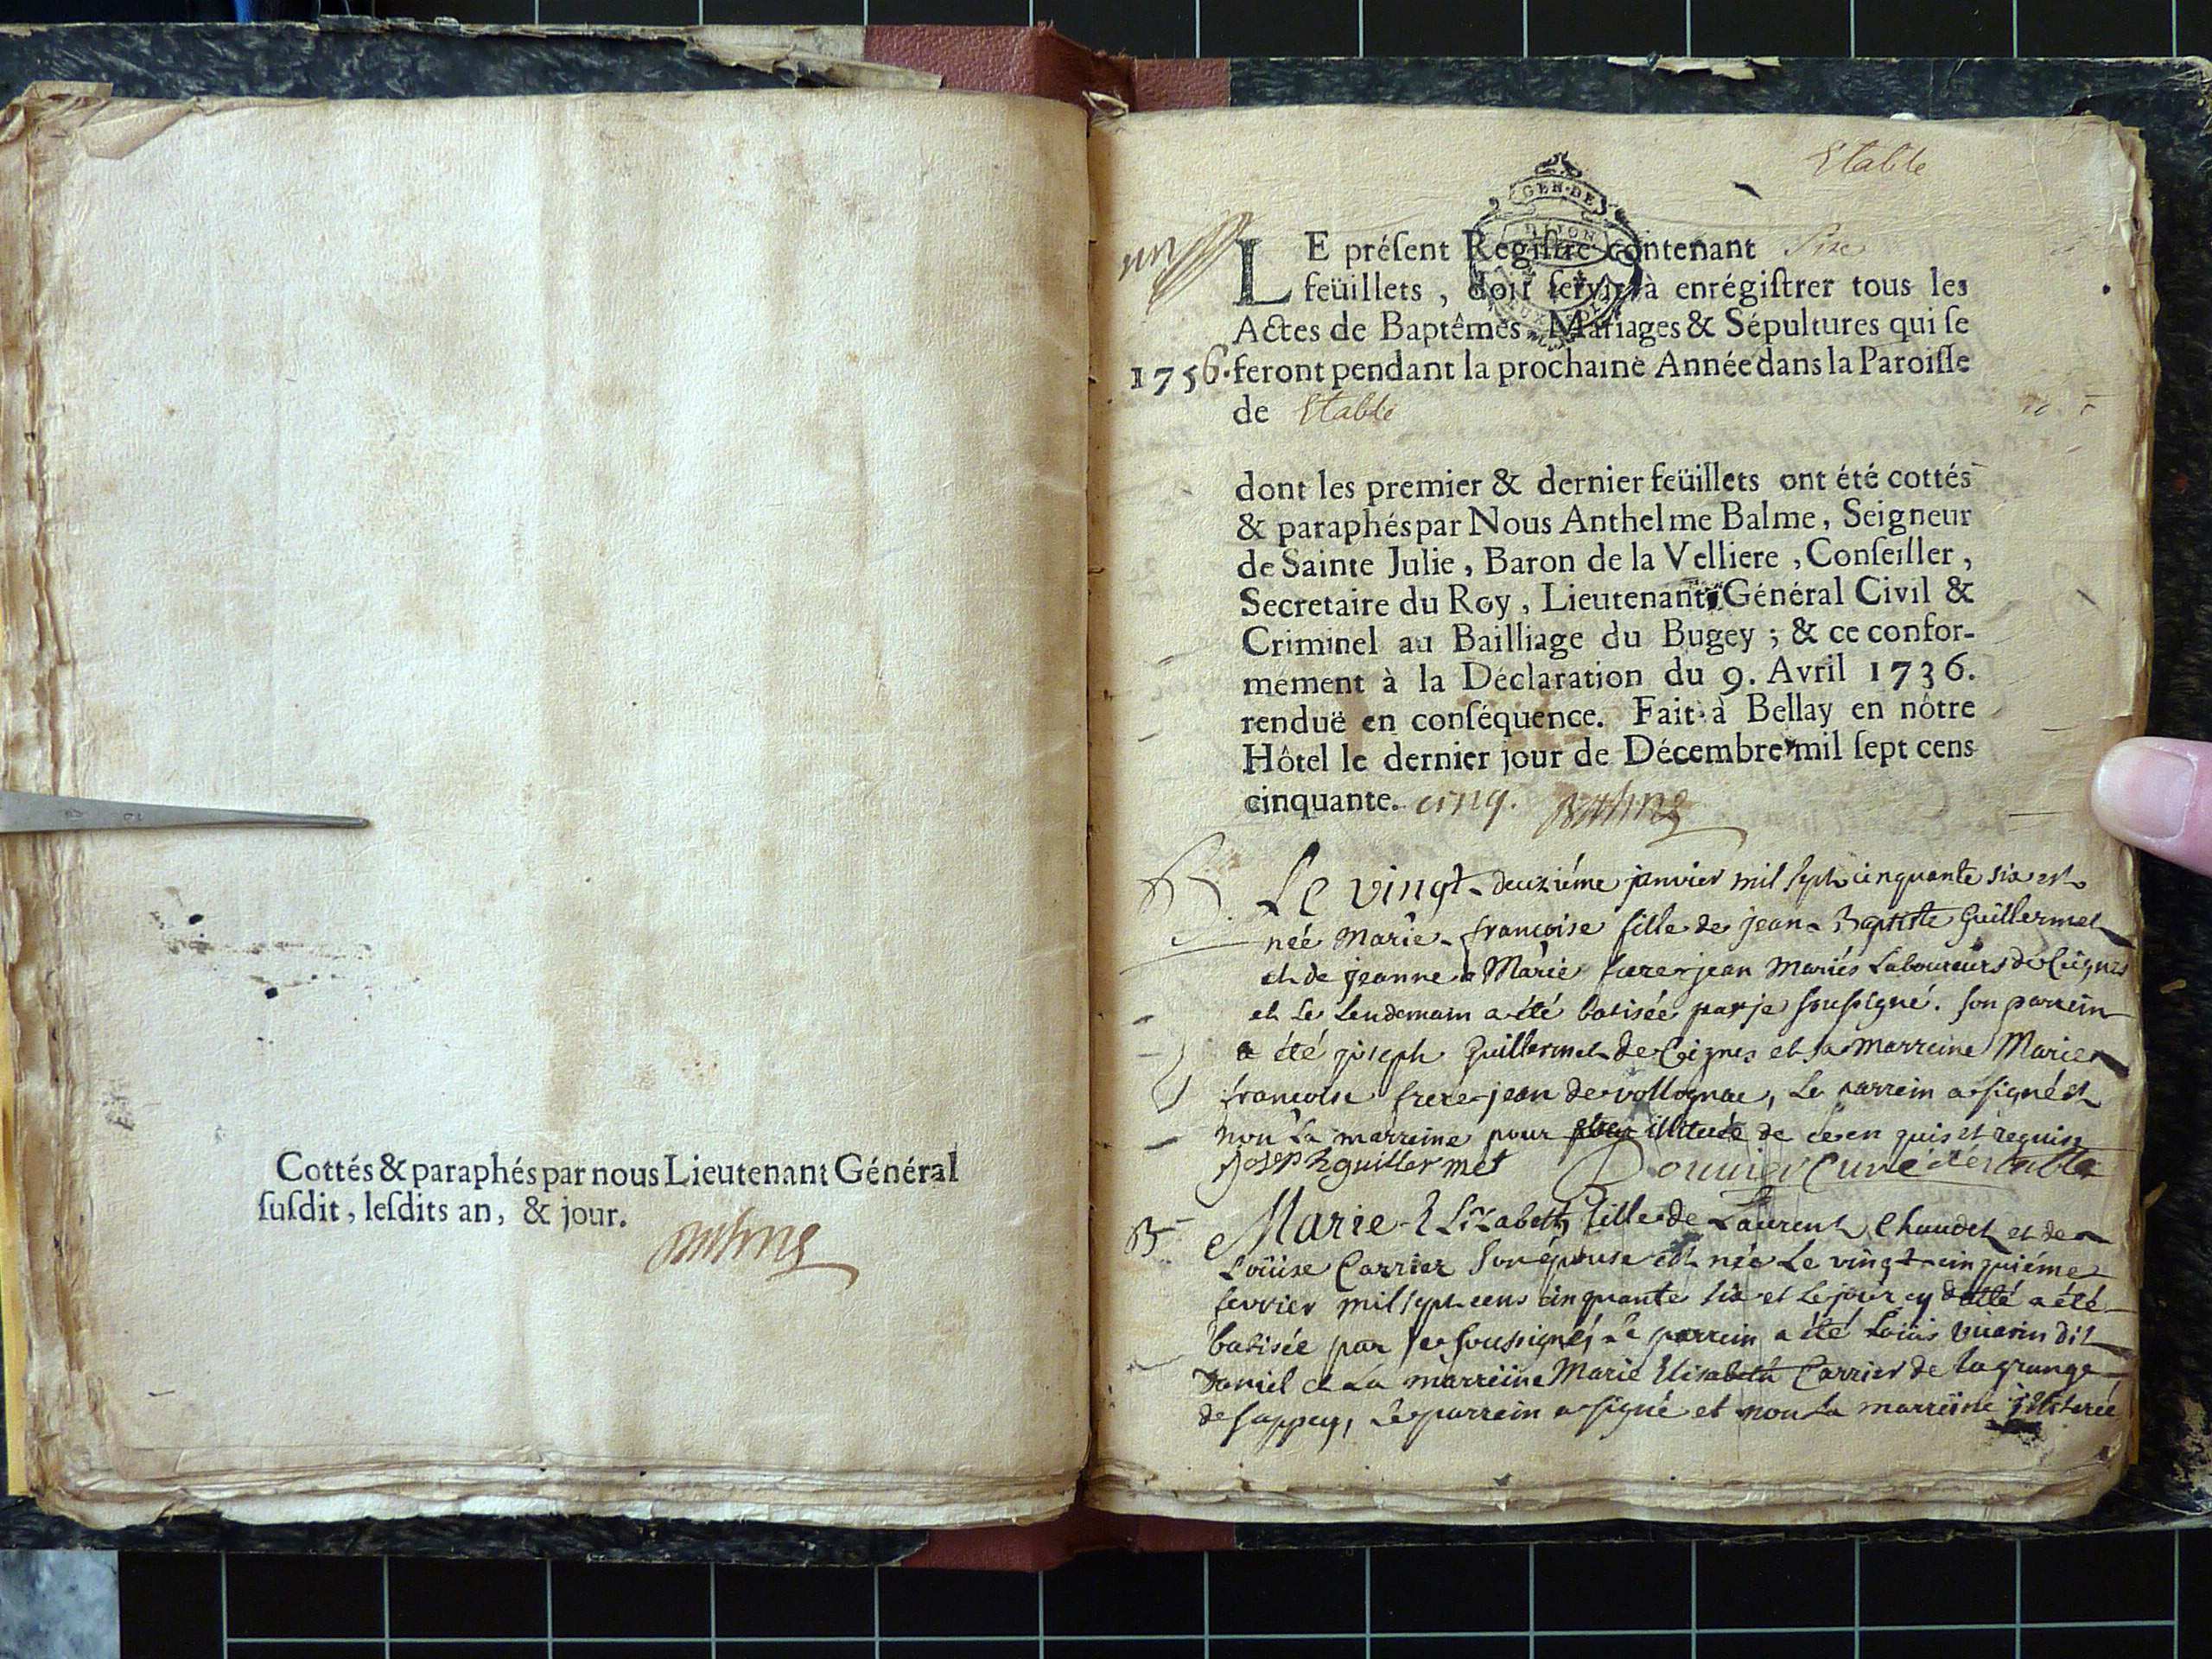 Cottés & paraphés par nous Lieutenant Général
ſuſdit, leſdits an, & jour.
Etable
GEN·DE
DIJON
un
LE préſent Regiſtre contenant Six
feüillets, doit ſervir à enrégiſtrer tous les
Actes de Baptêmes, Mariages & Sépultures qui ſe
1756. feront pendant la prochaine Année dans la Paroiſſe
de Etable
dont les premier & dernier feüillets ont été cottés
& paraphés par Nous Anthelme Balme, Seigneur
de Sainte Julie, Baron de la Velliere, Conſeiller,
Secretaire du Roy, Lieutenant Général Civil &
Criminel au Bailliage du Bugey ; & ce confor-
mement à la Déclaration du 9. Avril 1736.
renduë en conſéquence. Fait à Bellay en nôtre
Hôtel le dernier jour de Décembre mil ſept cens
cinquante. cinq. Balme
B. Le vingt-deuziéme janvier mil sept cinquante six est
née Marie-françoise fille de jean-Baptiste Guillermet
et de jeanne Marie frere-jean Mariés Laboureurs de
et le lendemain a été batisée par je soussigné. son parrein
a été joseph Guillermet de et sa marreine Marie
françoise frere-jean de vollognac, Le parrein a signé et
non la marreine pour illiterée de ce enquis et requise
Joseph guillermet Bouvier Curé d'estable
B Marie-Elizabeth fille de Laurent Chaudet et de
Loüise Carrier son épouse est née le vingt-cinquiéme
fevrier mil sept cens cinquante six et le jour cy datté a été
batisée par je soussigné, le parrein a été Loüis dit
Daniel et La marreine Marie Elisabeth Carrier de la grange
de sappey, le parrein a signé et non la marreine illiterée